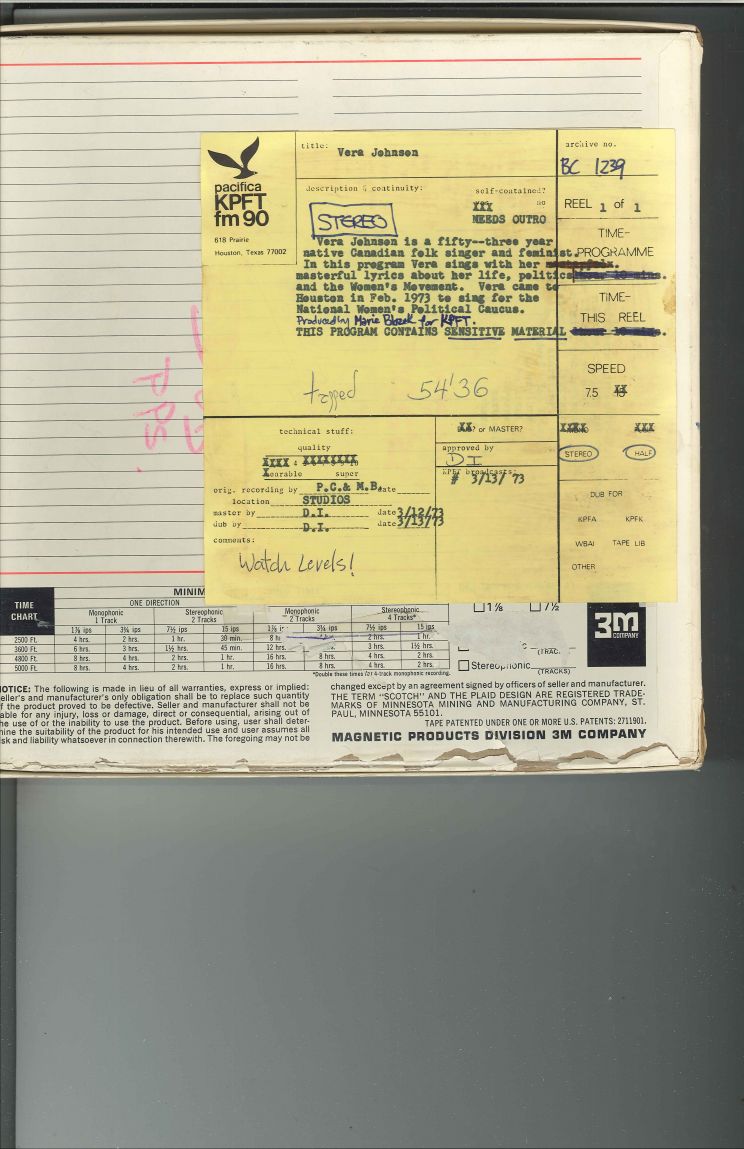 pacifica
KPFT
fm 90
618 Prairie
Houston, Texas 77002
title: Vera Johnson
archive no.
BC 1239
description & continuity:
self-contained?
XXX no
NEEDS OUTRO
STEREO
REEL 1 of 1
Vera Johnson is a fifty--three year
native Canadian folk singer and feminist.
In this program Vera sings with her
masterful lyrics about her life, politics
and the Women's Movement. Vera came to
Houston in Feb. 1973 to sing for the
National Women's Political Caucus.
Produced by Marie Blazek for KPFT.
THIS PROGRAM CONTAINS SENSITIVE MATERIAL
TIME-
PROGRAMME
TIME-
THIS REEL
SPEED
7.5
tapped 54'36
technical stuff:
quality
super
orig. recording by P.C.& M.B. date
location STUDIOS
master by D.I. date 3/12/73
dub by D.I. date 3/13/73
comments:
Watch Levels!
? or MASTER?
approved by
D I
KPFT broadcasts:
# 3/13/ 73
STEREO HALF
DUB FOR
KPFA KPFK
WBAI TAPE LIB
OTHER
pps.
TIME
CHART
MINIM
ONE DIRECTION
Monophonic
1 Track
Stereophonic
2 Tracks
Monophonic
2 Tracks
Stereophonic
4 Tracks*
1⅞ ips 3¾ ips 7½ ips 15 ips 1⅞ i 3¾ ips 7½ ips 15 ips
2500 Ft. 4 hrs. 2 hrs. 1 hr. 30 min. 8 h 2 hrs. 1 hr.
3600 Ft. 6 hrs. 3 hrs. 1½ hrs. 45 min. 12 hrs. 3 hrs. 1½ hrs.
4800 Ft. 8 hrs. 4 hrs. 2 hrs. 1 hr. 16 hrs. 8 hrs. 4 hrs. 2 hrs.
5000 Ft. 8 hrs. 4 hrs. 2 hrs. 1 hr. 16 hrs. 8 hrs. 4 hrs. 2 hrs.
*Double these times for 4-track monophonic recording.
1⅞ 7½
(TRAC
Stereophonic
(TRACKS)
3M
COMPANY
OTICE: The following is made in lieu of all warranties, express or implied:
eller's and manufacturer's only obligation shall be to replace such quantity
f the product proved to be defective. Seller and manufacturer shall not be
able for any injury, loss or damage, direct or consequential, arising out of
he use of or the inability to use the product. Before using, user shall deter-
mine the suitability of the product for his intended use and user assumes all
sk and liability whatsoever in connection therewith. The foregoing may not be
changed except by an agreement signed by officers of seller and manufacturer.
THE TERM "SCOTCH" AND THE PLAID DESIGN ARE REGISTERED TRADE-
MARKS OF MINNESOTA MINING AND MANUFACTURING COMPANY, ST.
PAUL, MINNESOTA 55101.
TAPE PATENTED UNDER ONE OR MORE U.S. PATENTS: 2711901.
MAGNETIC PRODUCTS DIVISION 3M COMPANY